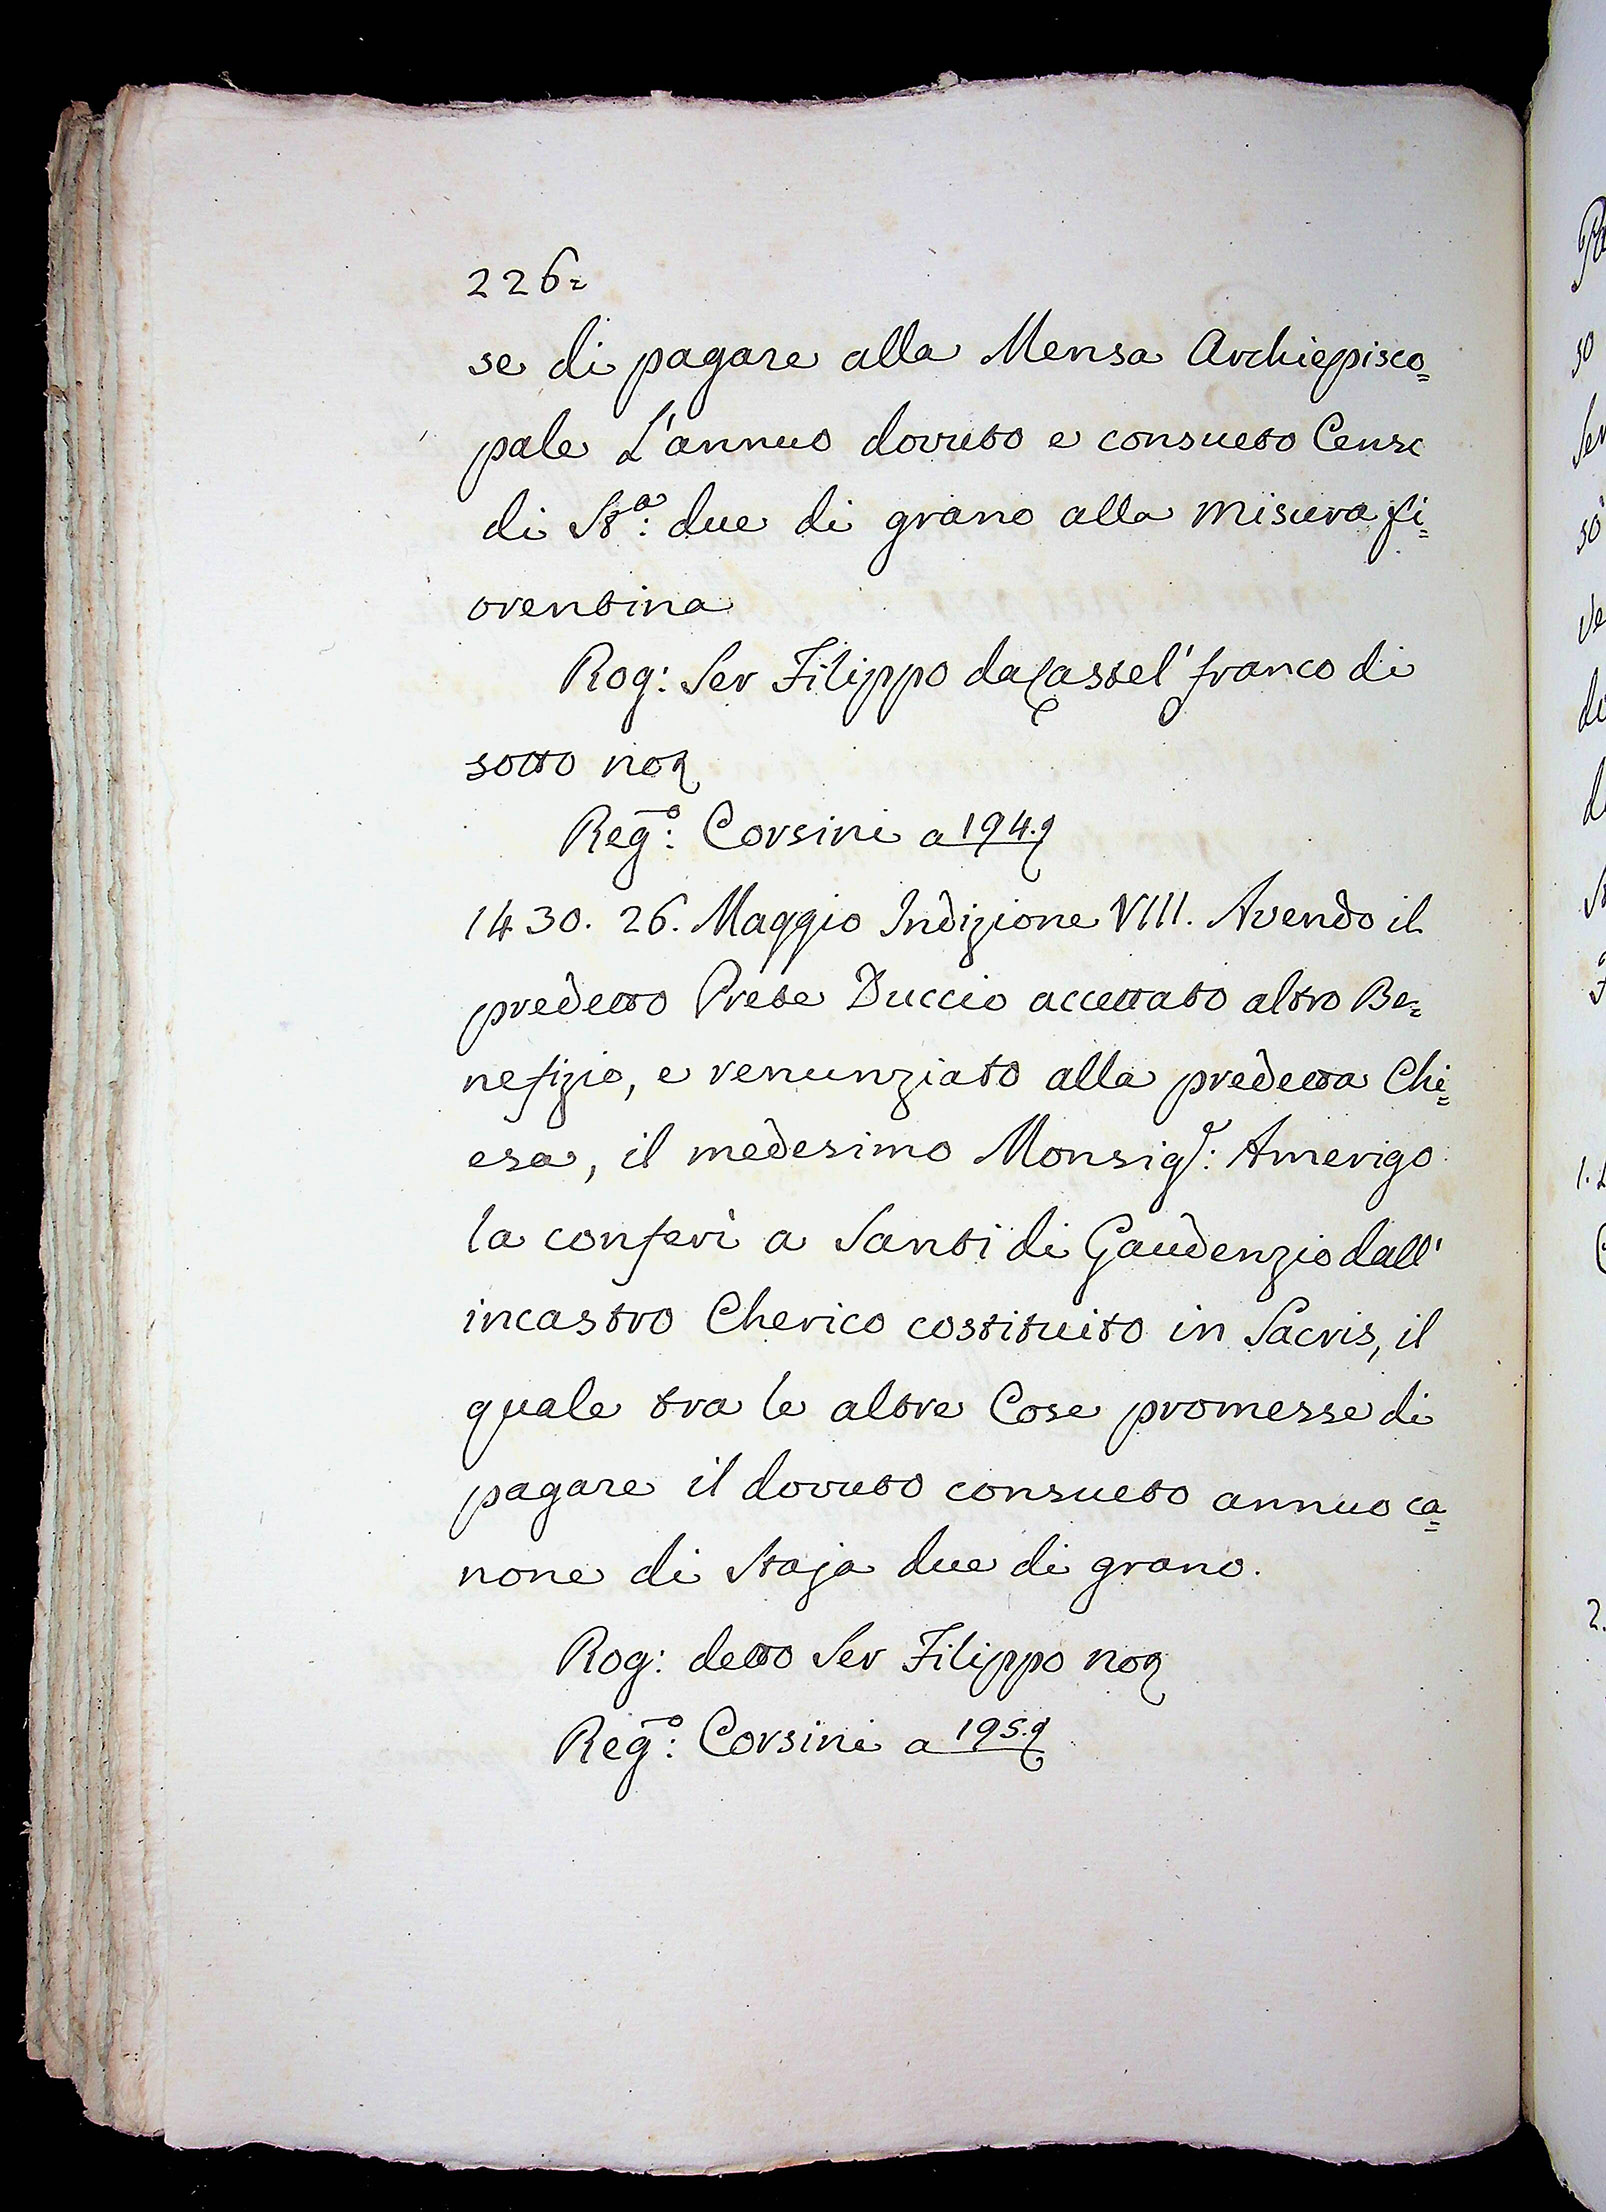 226=
se di pagare alla Mensa Archiepisco=
pale L'annuo dovuto e consueto Censo
di St.a: due di grano alla misura fi=
orentina
Rog: Ser Filippo da Castel' franco di
sotto not
Reg.o: Corsini a 194.
1430. 26. Maggio Indizione VIII. Avendo il
predetto Prete Duccio accettato altro Be=
nefizio, e renunziato alla predetta Chi=
esa, il medesimo Monsig.r: Amerigo
la conferì a Santi di Gaudenzio dall'
incastro Cherico costituito in Sacris, il
quale tra le altre Cose promesse di
pagare il dovuto consueto annuo ca=
none di Staja due di grano.
Rog: detto Ser Filippo not
Reg.o: Corsini a 195.